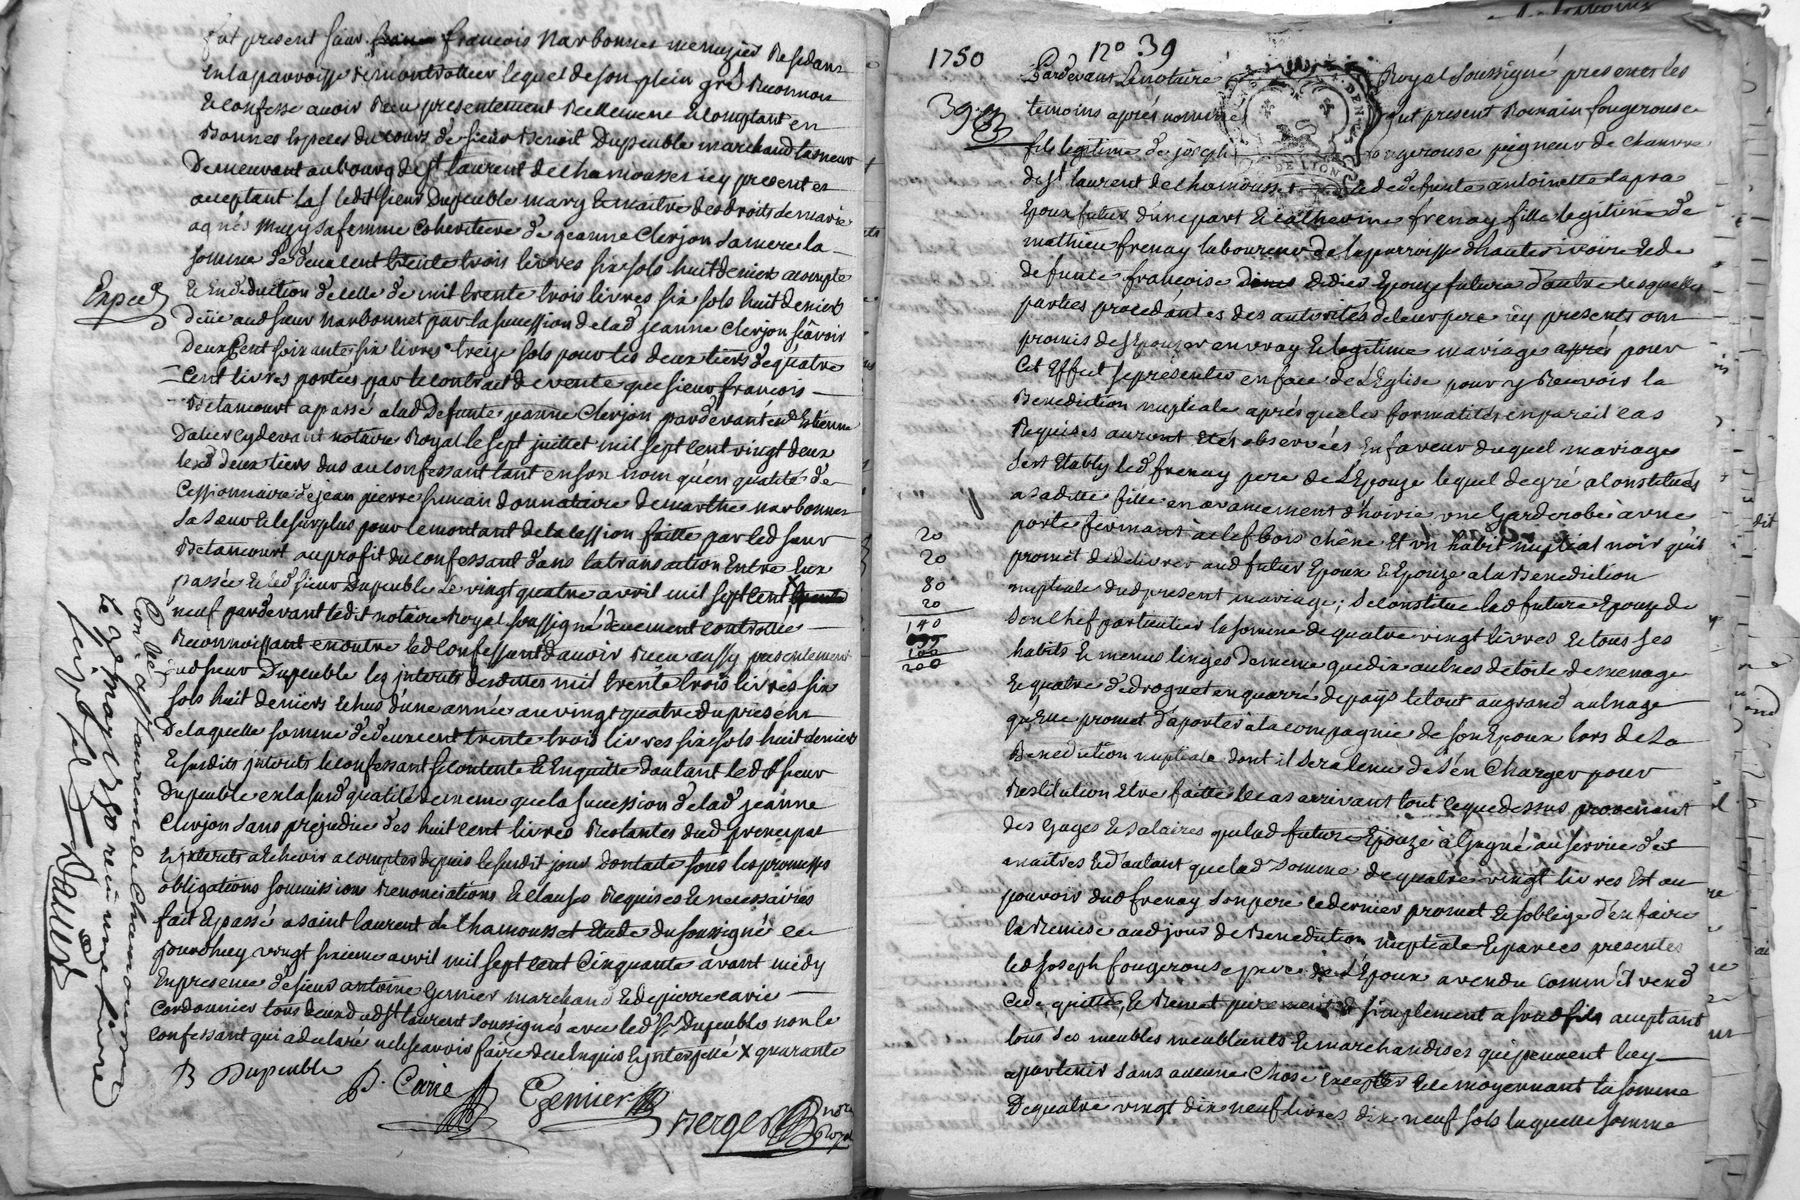 fut present sieur francois Narbonnet menuizier Residant
en la parroisse de montrottier lequel de son plein gré Reconnoit
& confesse avoir Receu presentement Reellement & Comptant en
Bonnes Especes du cours de sieur Benoit Dupeuble marchand tanneur
Demeurant au bourg de st laurent de chamousset icy present et
acceptant led sieur Dupeuble mary & maître des droits de marie
agnés Muzy sa femme Coheritiere de jeanne Clerjon sa mere la
somme de deux cent trente trois livres six sols huit deniers acompte
& En deduction de celle de mil trente trois livres six sols huit deniers
Expeé
Düe aud sieur Narbonnet par la succession de lad jeanne Clerjon sçavoir
Deux Cent soixante six livres treize sols pour les deux tiers de quatre
Cent livres portées par le contrat de vente que sieur francois
Betancourt a passé a lad Defunte jeanne Clerjon pardevant
Dalier cydevant notaire Royal le sept juillet mil sept cent vingt deux
lesd deux tiers dus au confessant tant en son nom qu'en qualité de
Cessionnaire de jean pierre simean donnataire de marthe Narbonnet
sa sœur & le surplus pour le montant de la cession faitte par led sieur
Betancourt au profit du confessant dans la transaction Entre Eux
passée & led sieur Dupeuble le vingt quatre avril mil sept cent
neuf pardevant ledit notaire Royal soussigné deuement controllée
Reconnoissant en outre led confessant d'avoir Receu aussy presentement
dud sieur Dupeuble les interets desdittes mil trente trois livres six
sols huit deniers Echus d'une année au vingt quatre du present
De laquelle somme de deux cent trente trois livres six sols huit deniers
& susdits interets le confessant se contente & En quitte d'autant led sieur
Dupeuble en la susd qualité de meme que la succession de lad jeanne
Clerjon sans prejudice des huit cent livres Restantes dud principal
& interets a Echeoir a compter depuis le susdit jour dont acte sous les promesses
obligations soumissions Renonciations & clauses Requises & necessaires
fait & passé a saint laurent de Chamousset Etude du soussigné ce
jourdhuy vingt sixieme avril mil sept cent Cinquante avant midy
En presence de sieur antoine Gemier marchand & de pierre Carie
Cordonnier tous deux dud st laurent soussignés avec led sr Dupeuble non le
confessant qui a declaré ne le sçavoir faire de ce Enquis & interpellé X quarante
B Dupeuble
P. Carie
Gemier
Berger
Con.lle a st laurent de Chamousset
le 9e may 1750 receu une livre
1750
N° 39
39e
Pardevant Le notaire Royal soussigné presents les
temoins aprés nommés fut present Romain fougerouse
fils legitime de joseph fougerouse peigneur de chanvre
de st laurent de chamousset & de defunte antoinette lapra
Epoux futur d'une part & catherine frenay fille legitime de
mathieu frenay laboureur de la parroisse d'hauterivoire & de
defunte francoise didier Epouze future d'autre lesquelles
parties procedantes des autorités de leur pere icy presents ont
promis de s'Epouzer en vray & legitime mariage aprés pour
Cet Effect se presenter en face de L'Eglise pour y Recevoir la
Benediction nuptiale aprés que les formalités en pareil cas
Requises auront Eté observées En faveur duquel mariage
s'est Etably led frenay pere de L'Epouze lequel de gré a Constitué
a sa ditte fille en avancement d'hoirie une Garderobe a une
porte fermant a clef bois chêne Et un habit nuptial noir qu'il
promet de delivrer aud futur Epoux & Epouze a la Benediction
nuptiale du present mariage; se constitue lad future Epouze de
son chef particulier la somme de quatre vingt livres & tous ses
habits & menus linges de meme que dix aulnes de toile de menage
& quatre de droguet en quarré de pays le tout au grand aulnage
20
20
80
20
140
200
qu'elle promet d'aporter a la compagnie de son Epoux lors de la
Benediction nuptiale dont il sera tenu de s'en Charger pour
Restitution Etre faitte le cas arrivant tout ce que dessus provenant
des gages & salaires que lad future Epouze a gagné au service des
maitres & d'autant que lad somme de quatre vingt livres Est au
pouvoir dud frenay son pere ce dernier promet & s'oblige d'en faire
la Remise aud jour de Benediction nuptiale & par ces presentes
led joseph fougerouse pere de L'Epoux a vendu comm'il vend
Cede, quitte, & Remet purement & simplement a sond fils acceptant
tous ses meubles meublants & marchandises qui peuvent luy
apartenir sans aucune chose Excepter & ce moyennant la somme
De quatre vingt dix neuf livres dix neuf sols laquelle somme